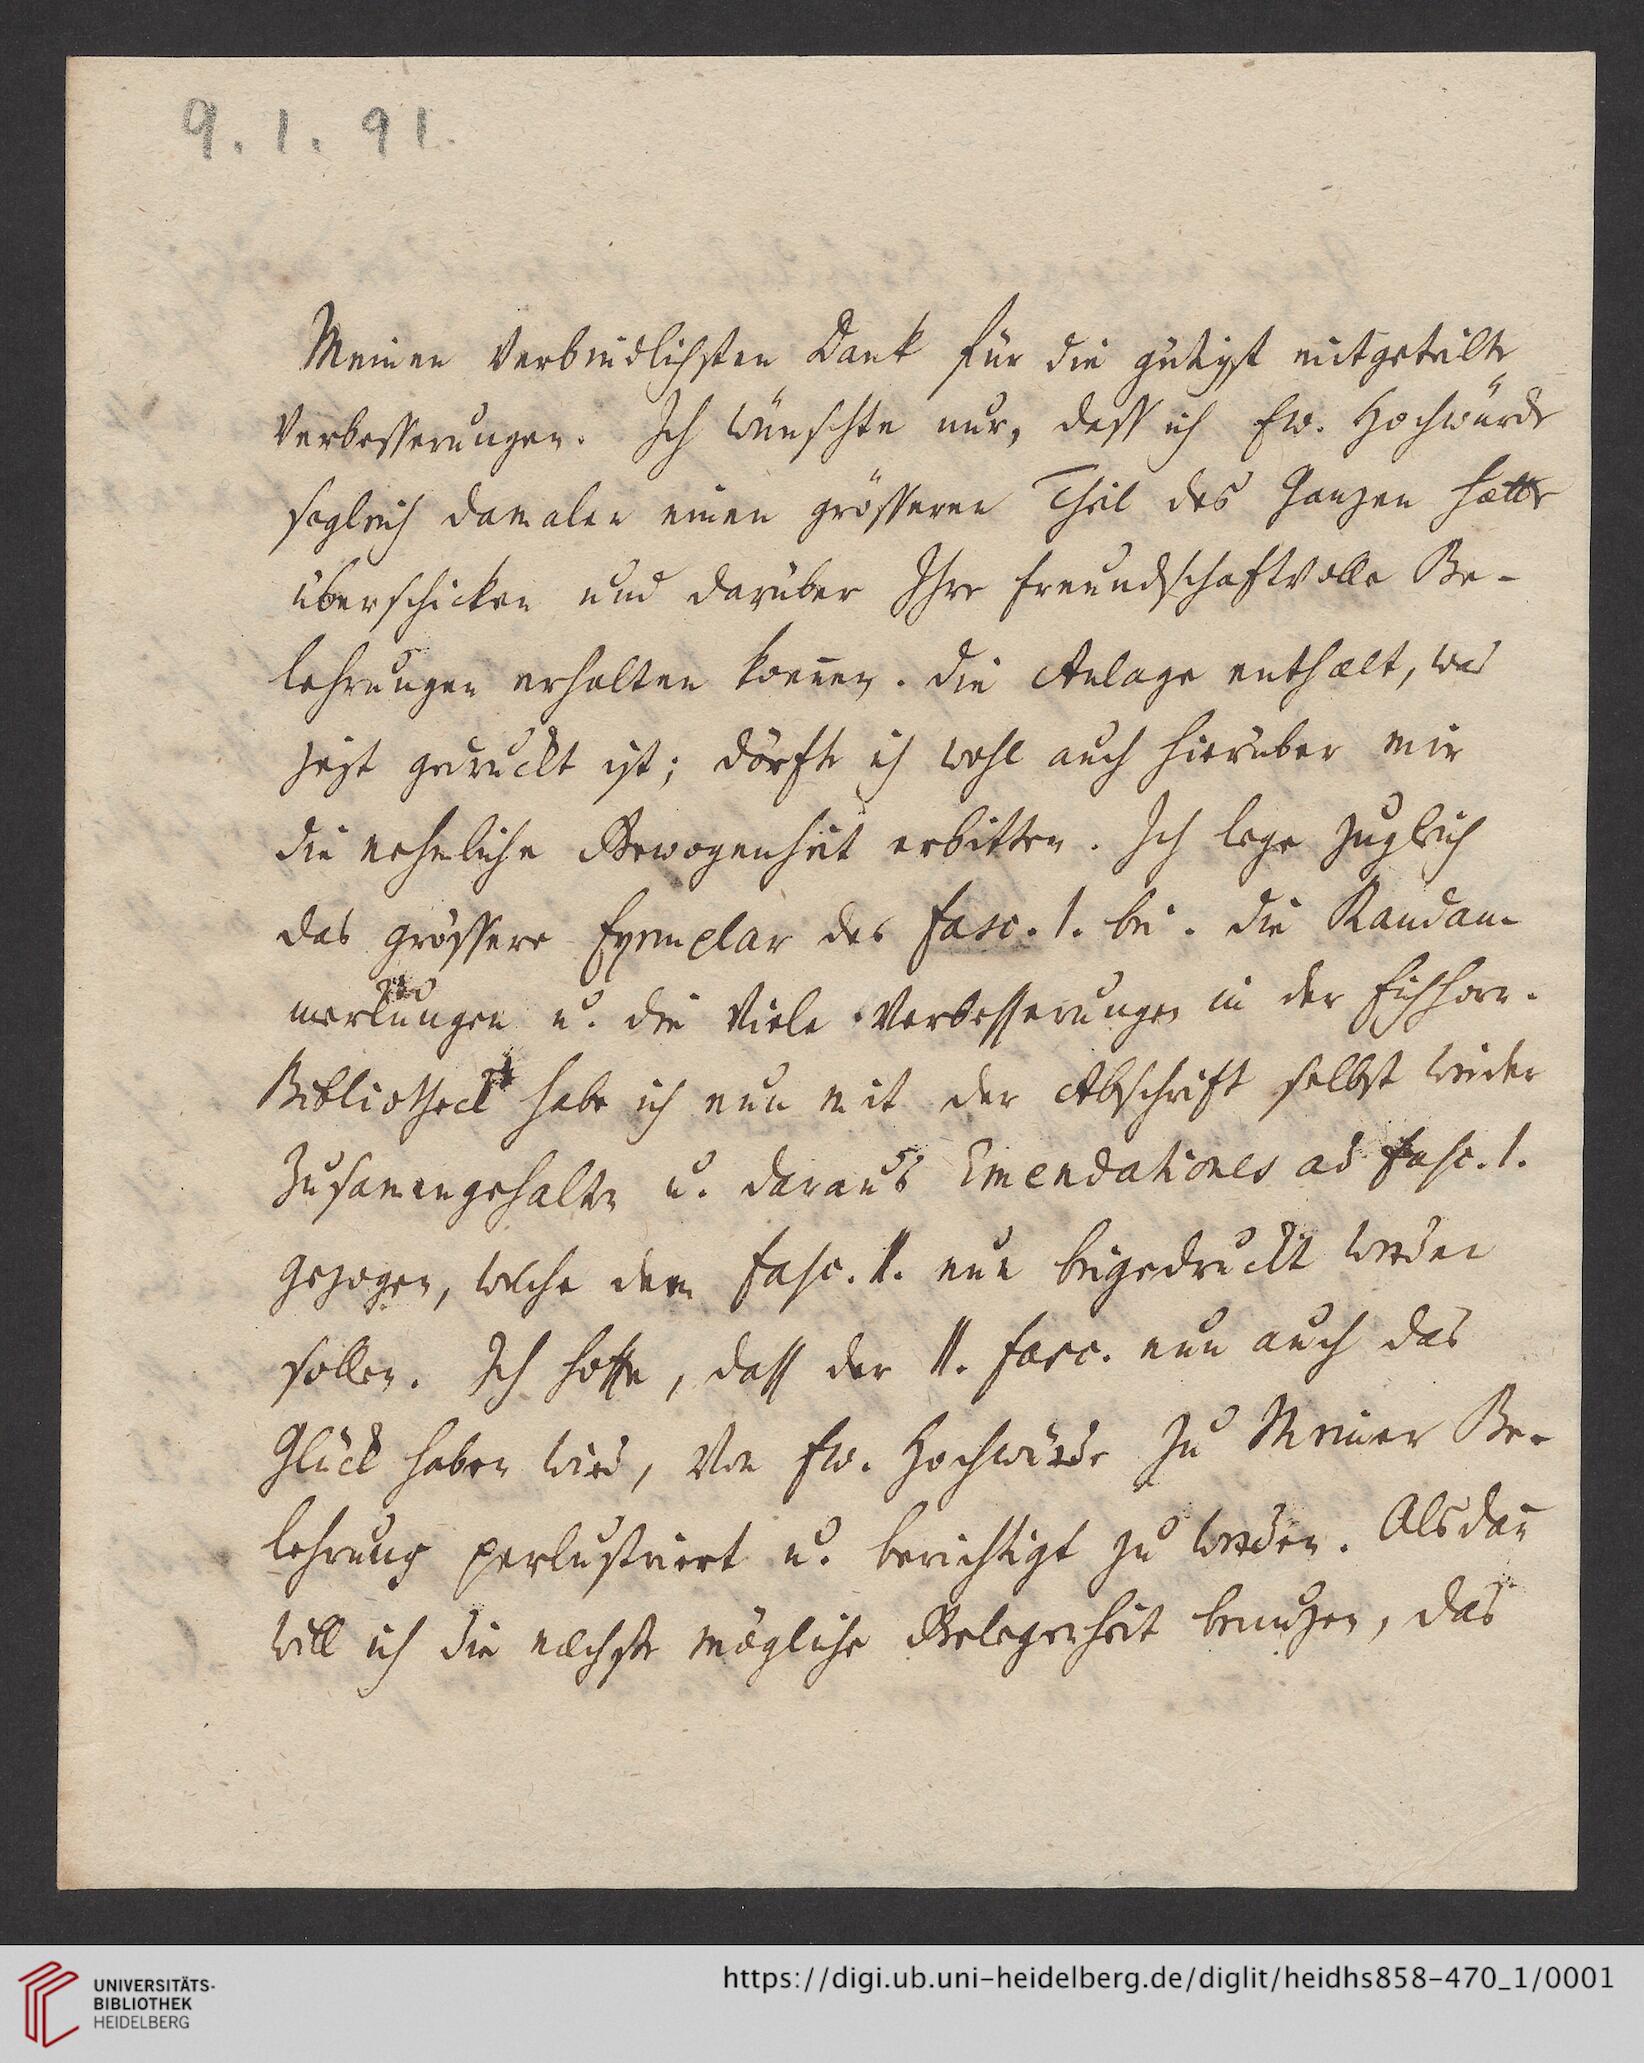 9. 1. 91.
Meinen verbindlichsten Dank für die gütigst mitgeteilte
Verbesserungen. Ich wünschte nur, dass ich Ew. Hochwürde
sogleich damalen einen grösseren Theil des Ganzen hætte
überschicken und darüber Ihre freundschaftvolle Be-
lehrungen erhalten koennen. Die Anlage enthælt, was
jezt gedruckt ist; dörfte ich wohl auch hierüber mir
die nehmliche Gewogenheit erbitten. Ich lege zugleich
das grössere Exemplar des Fasc. I. bei. Die Randan-
merkungen u. die viele Verbesserungen in der Eichhorn.
Bibliotheck habe ich nun mit der Abschrift selbst wieder
zusamengehalten u. daraus Emendationes ad Fasc. I.
gezogen, welche dem Fasc. II. nun beigedruckt werden
sollen. Ich hoffe, dass der II. Fasc. nun auch das
Glück haben wird, von Ew. Hochwürde zu Meiner Be-
lehrung perlustriert u. berichtigt zu werden. Alsdan̄
will ich die næchste mögliche Gelegenheit benuzen, das
UNIVERSITÄTS-
BIBLIOTHEK
HEIDELBERG
https://digi.ub.uni-heidelberg.de/diglit/heidhs858-470_1/0001